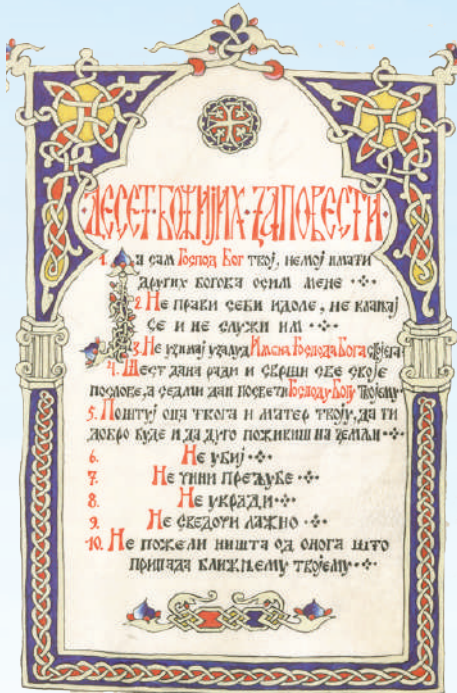 ДЕСЕТ·БОЖИЈИХ·ЗАПОВЕСТИ
1. Ја сам Господ Бог твој, немој имати
других богова осим мене
2. Не прави себи идоле, не клањај
се и не служи им
3. Не узимај узалуд Имена Господа Бога својега
4. Шест дана ради и сврши све своје
послове, а седми дан посвети Господу Богу Твојему
5. Поштуј оца твога и матер твоју, да ти
добро буде и да дуго поживиш на земљи
6. Не убиј
7. Не чини прељубе
8. Не укради
9. Не сведочи лажно
10. Не пожели ништа од онога што
припада ближњему твојему